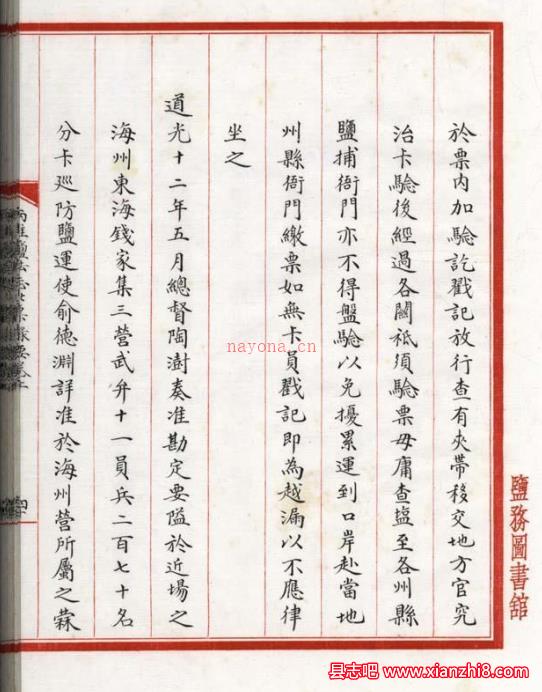 於票內加驗訖戳記放行查有夾帶移交地方官究
治卡驗後經過各關祗須驗票毋庸查鹽至各州縣
鹽捕衙門亦不得盤驗以免擾累運到口岸赴當地
州縣衙門繳票如無卡員戳記即為越漏以不應律
坐之
道光十二年五月總督陶澍奏准勘定要隘於近場之
海州東海錢家集三營武弁十一員兵二百七十名
分卡巡防鹽運使俞德淵詳准於海州營所屬之蔴
鹽務圖書館
nayona.cn
县志吧 www.xianzhi8.com